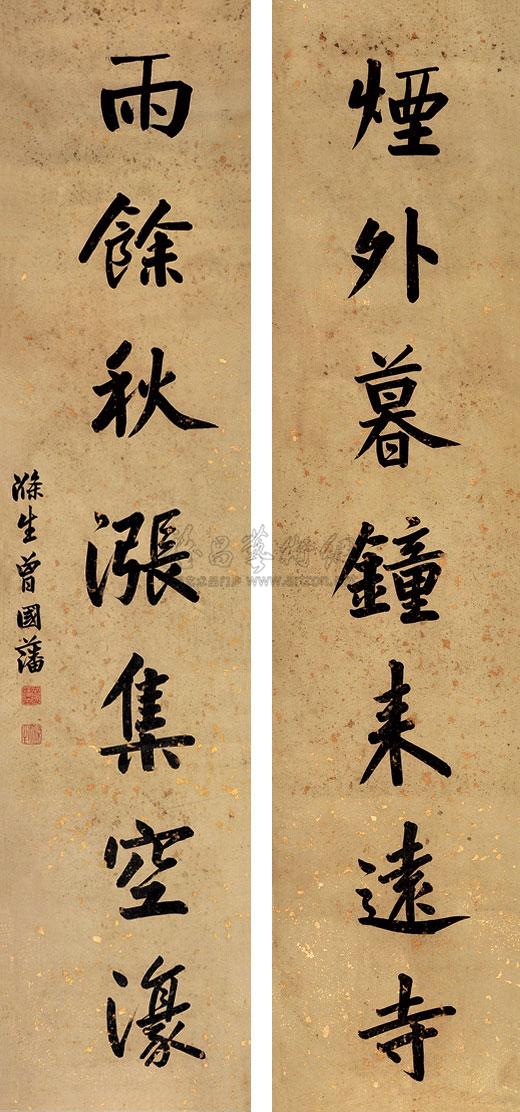 煙外暮鐘来遠寺
雨餘秋漲集空濠
滌生曾國藩
www.artron.net